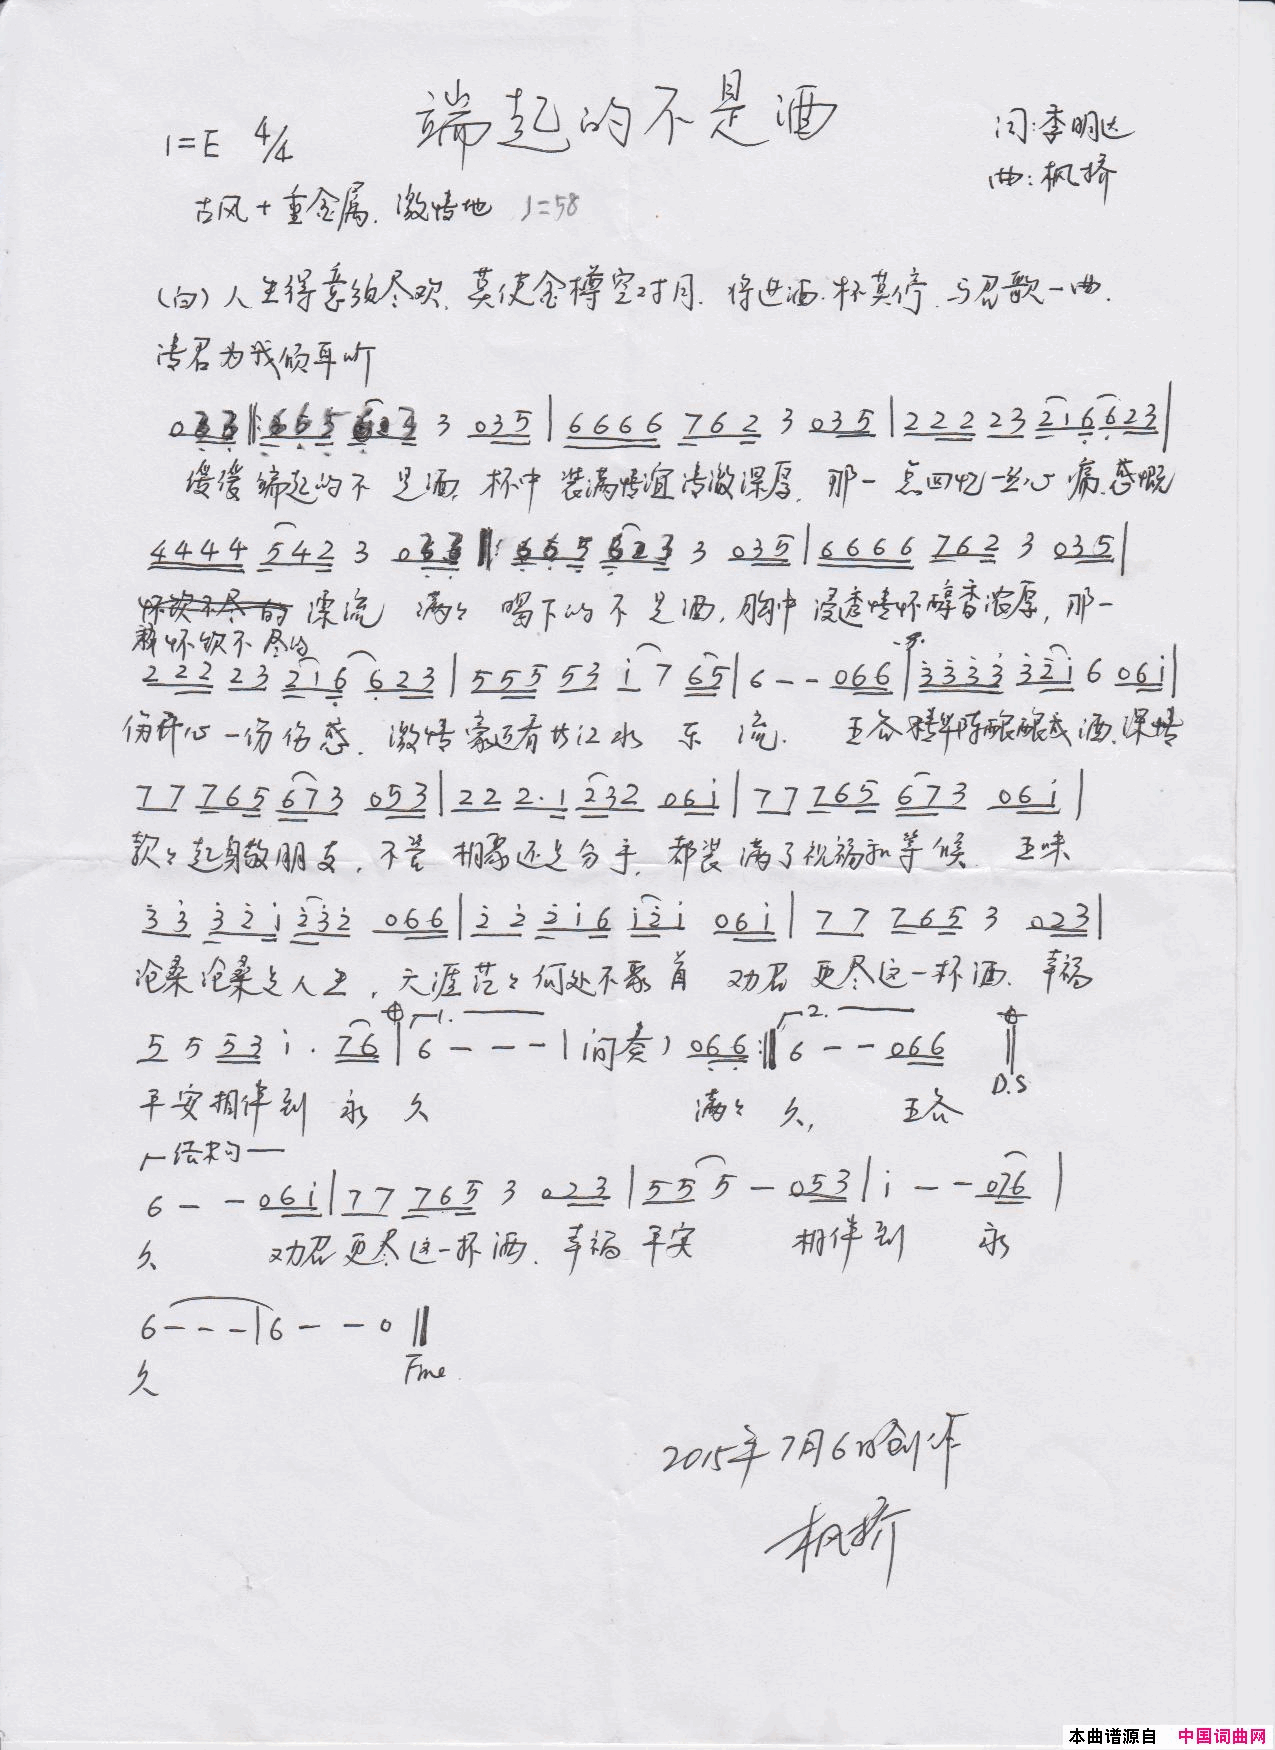 端起的不是酒
1=E 4/4
词:李明达
曲:枫桥
古风+重金属、激情地 ♩=58
(白)人生得意须尽欢、莫使金樽空对月、将进酒、杯莫停、与君歌一曲、
请君为我倾耳听
033 ‖: 665 623 3 035 | 6666 762 3 035 | 222 23 216 623 |
缓缓端起的不是酒、杯中装满情谊清澈深厚、那一点回忆一丝心痛、感慨
4444 542 3 033 ‖: 665 623 3 035 | 6666 762 3 035 |
漂流 满々喝下的不是酒,胸中浸透情怀醇香浓厚,那一
怀饮不尽的
222 23 216 623 | 555 53 i 7 65 | 6 - - 066 | 3333 32i 6 06i |
份开心一份伤感、激情豪迈看大江水东流、五谷精华陈酿酿成酒、深情
77 765 673 053 | 22 2·1 232 06i | 77 765 673 06i |
款々起身敬朋友,不管相聚还是分手,都装满了祝福和等候、五味
33 32i 232 066 | 22 2i6 i2i 06i | 77 765 3 023 |
沧桑沧桑是人生,天涯茫々何处不聚首 劝君更尽这一杯酒、幸福
5 5 53 i· 76 | 1. 6 - - - | 间奏) 066 :‖ 2. 6 - - 066 ‖
D.S
平安相伴到永久 满々久, 五谷
结束句
6 - - 06i | 77 765 3 023 | 55 5 - 053 | i - - 076 |
久 劝君更尽这一杯酒、幸福平安 相伴到 永
6 - - - | 6 - - 0 ‖
久 Fine
2015年7月6日创作
枫桥
本曲谱源自 中国词曲网